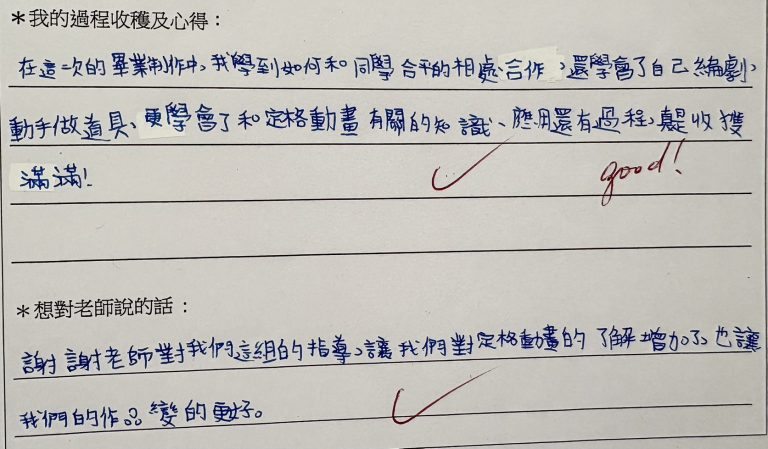 ＊我的過程收穫及心得：
在這一次的畢業制作中，我學到如何和同學合平的相處合作，還學會了自己編劇、
動手做道具、更學會了和定格動畫有關的知識、應用還有過程，真是收獲
滿滿！
good!
＊想對老師說的話：
謝謝老師對我們這組的指導，讓我們對定格動畫的了解增加了，也讓
我們的作品變的更好。